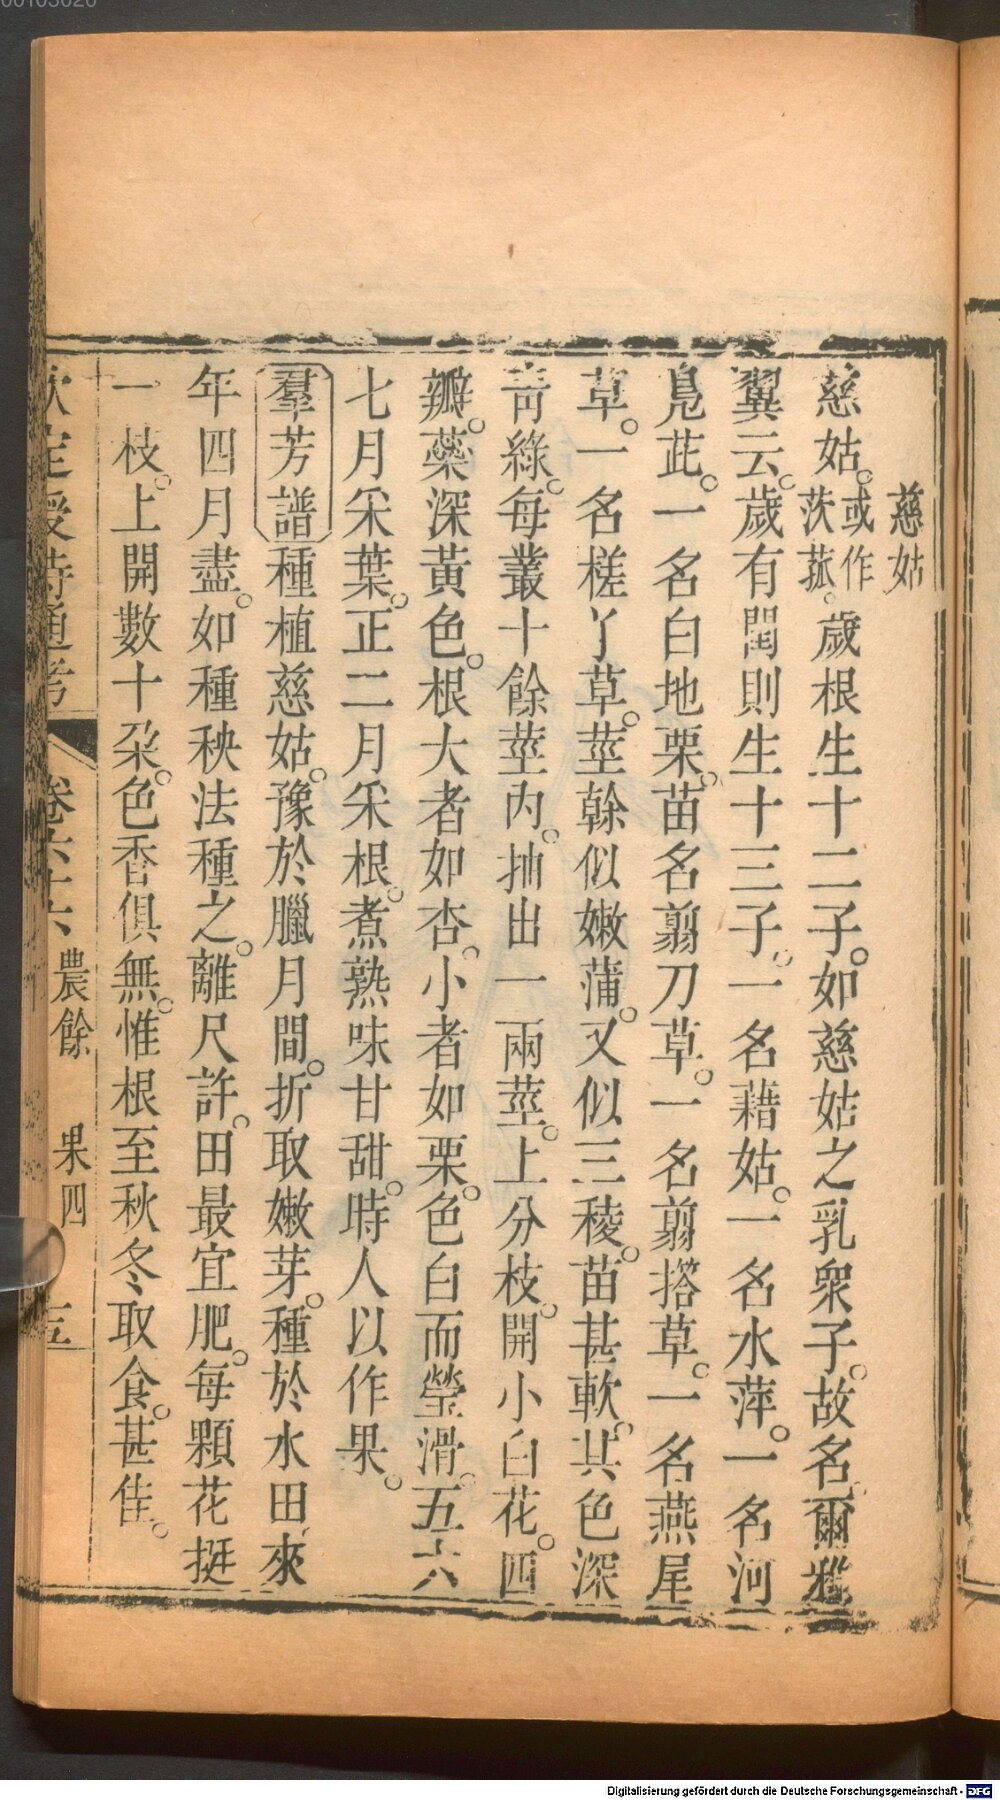 慈姑
慈姑。或作茨菰。歲根生十二子。如慈姑之乳衆子。故名。爾雅
翼云。歲有閏則生十三子。一名藉姑。一名水萍。一名河
鳧茈。一名白地栗。苗名翦刀草。一名翦搭草。一名燕尾
草。一名槎丫草。莖幹似嫩蒲。又似三稜。苗甚軟。其色深
青綠。每叢十餘莖。內抽出一兩莖。上分枝。開小白花。四
瓣。蘂深黃色。根大者如杏。小者如栗。色白而瑩滑。五六
七月采葉。正二月采根。煮熟味甘甜。時人以作果。
羣芳譜種植慈姑。豫於臘月間。折取嫩芽。種於水田。來
年四月盡。如種秧法種之。離尺許。田最宜肥。每顆花挺
一枝。上開數十朶。色香俱無。惟根至秋冬取食。甚佳。
欽定授時通考 卷六十六 農餘 果四 五
00103020
Digitalisierung gefördert durch die Deutsche Forschungsgemeinschaft - DFG